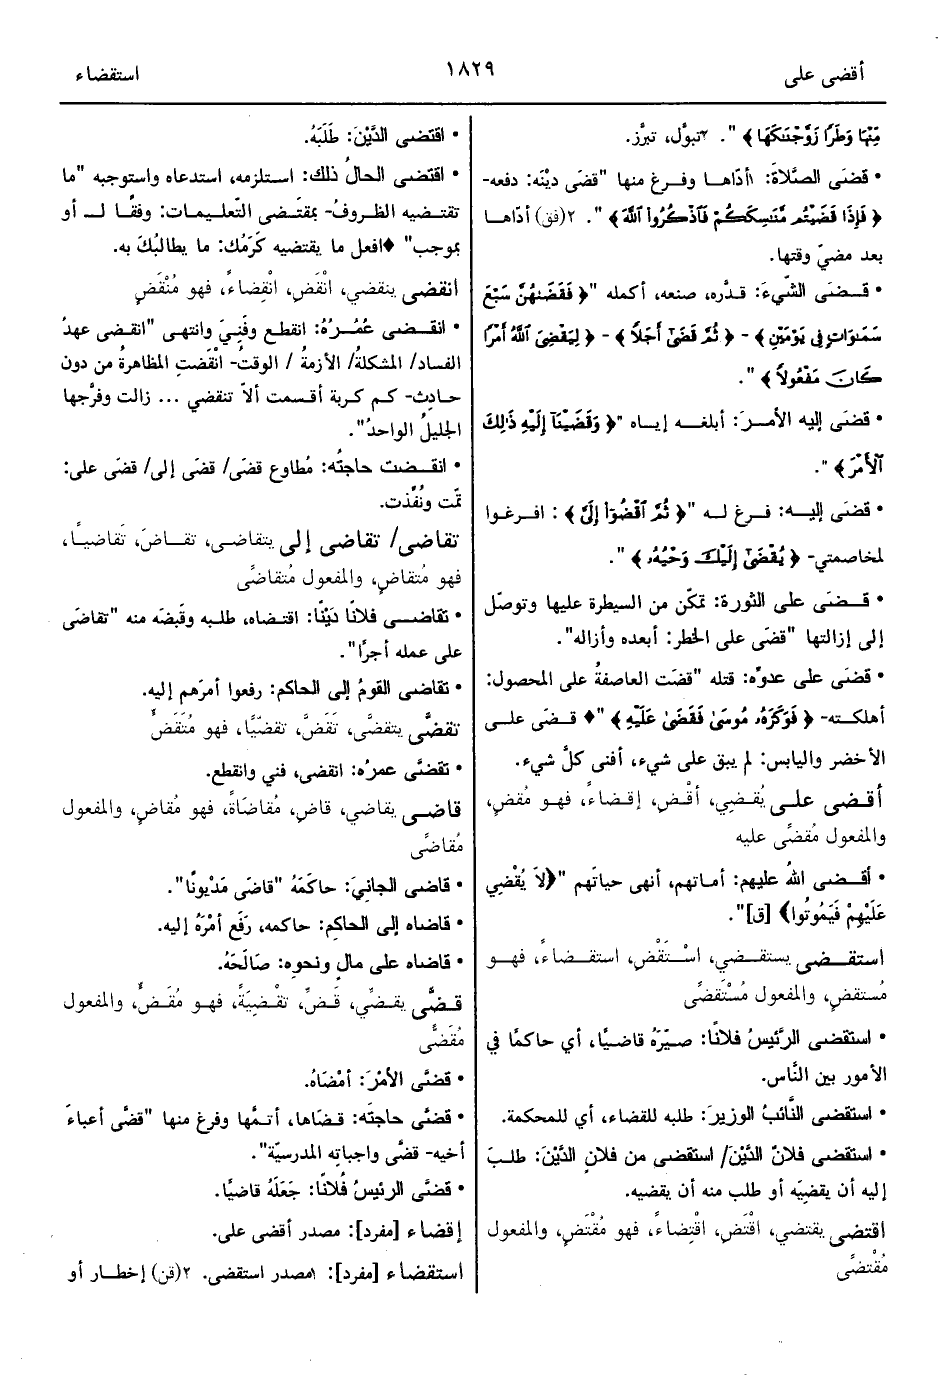 أقضى على
١٨٢٩
استقضاء
مِّنْهَا وَطَرًا زَوَّجْنَٰكَهَا﴾". ٢تبوَّل، تبرَّز.
• قضَى الصَّلاةَ: ١أدّاهـا وفـرغ منها "قضَى ديْنَه: دفعه-
﴿فَإِذَا قَضَيْتُم مَّنَٰسِكَكُمْ فَٱذْكُرُوا۟ ٱللَّهَ﴾". ٢(فق) أدّاهـا
بعد مضيّ وقتها.
• قـضَى الشّيءَ: قـدَّره، صنعه، أكمله "﴿فَقَضَىٰهُنَّ سَبْعَ
سَمَٰوَاتٍ فِى يَوْمَيْنِ﴾- ﴿ثُمَّ قَضَىٰٓ أَجَلًا﴾- ﴿لِيَقْضِىَ ٱللَّهُ أَمْرًا
كَانَ مَفْعُولًا﴾".
• قضَى إليه الأمـرَ: أبلغـه إيـاه "﴿وَقَضَيْنَآ إِلَيْهِ ذَٰلِكَ
ٱلْأَمْرَ﴾".
• قضَى إليـه: فـرغ لـه "﴿ثُمَّ ٱقْضُوٓا۟ إِلَىَّ﴾: افـرغـوا
لمخاصمتي- ﴿يُقْضَىٰٓ إِلَيْكَ وَحْيُهُۥ﴾".
• قـضَى على الثورة: تمكّن من السيطرة عليها وتوصّل
إلى إزالتها "قضَى على الخطر: أبعده وأزاله".
• قضَى على عدوّه: قتله "قضت العاصفةُ على المحصول:
أهلكـته- ﴿فَوَكَزَهُۥ مُوسَىٰ فَقَضَىٰ عَلَيْهِ﴾"♦ قـضَى علـى
الأخضر واليابس: لم يبق على شيء، أفنى كلَّ شيء.
أقـضى علـى يُقـضِي، أقْـضِ، إقـضاءً، فهـو مُقـضٍ،
والمفعول مُقضًى عليه
• أقـضى اللهُ عليهم: أمـاتهم، أنهى حياتَهم "﴿لاَ يُقْضِي
عَلَيْهِمْ فَيَمُوتُوا﴾ [ق]".
استقـضى يستقـضي، اسْـتَقْضِ، استقـضاءً، فهـو
مُستقضٍ، والمفعول مُسْتَقضًى
• استقضى الرَّئيسُ فلانًا: صـيّرَهُ قاضـيًا، أي حاكمًا في
الأمور بين النَّاس.
• استقضى النَّائبُ الوزيرَ: طلبه للقضاء، أي للمحكمة.
• استقضى فلانٌ الدَّيْنَ/ استقضى من فلانٍ الدَّيْنَ: طلبَ
إليه أن يقضيَه أو طلب منه أن يقضيه.
اقتضى يقتضي، اقْتَضِ، اقْتِضاءً، فهو مُقْتَضٍ، والمفعول
مُقْتضًى
• اقتضى الدَّيْنَ: طَلَبَهُ.
• اقتضى الحالُ ذلك: استلزمه، استدعاه واستوجبه "ما
تقتضيه الظروفُ- بمقتَضى التّعليمات: وفقًا لـ أو
بموجب" ♦افعل ما يقتضيه كَرَمُك: ما يطالبُكَ به.
انقضى ينقضي، انْقَضِ، انْقِضاءً، فهو مُنْقَضٍ
• انقـضى عُمْـرُهُ: انقطع وفَنِيَ وانتهى "انقـضى عهدُ
الفساد/ المشكلةُ/ الأزمةُ/ الوقتُ- انْقَضتِ المظاهرةُ من دون
حـادِث- كـم كربة أقـسمت ألاّ تنقضي ... زالت وفرَّجها
الجليلُ الواحدُ".
• انقـضت حاجتُه: مُطاوع قضَى/ قضَى إلى/ قضَى على:
تمّت ونُفِّذت.
تقاضى/ تقاضى إلى يتقاضى، تقـاضَ، تَقاضيًا،
فهو مُتقاضٍ، والمفعول مُتقاضًى
• تقاضـى فلانًا دَيْنًا: اقتـضاه، طلـبه وقَبَضَه منه "تقاضَى
على عمله أجرًا".
• تقاضى القومُ إلى الحاكم: رفعوا أمرَهم إليه.
تقضَّى يتقضَّى، تَقَضَّ، تقضّيًا، فهو مُتقضٍّ
• تقضَّى عمرُه: انقضى، فني وانقطع.
قاضـى يقاضي، قاضِ، مُقاضـاةً، فهو مُقاضٍ، والمفعول
مُقاضًى
• قاضى الجانيَ: حاكَمَهُ "قاضَى مَدْيُونًا".
• قاضاه إلى الحاكم: حاكمه، رَفَع أمْرَهُ إليه.
• قاضاه على مالٍ ونحوِه: صَالَحَهُ.
قـضَّى يقـضِّي، قَـضِّ، تقْـضِيَةً، فهـو مُقَـضٍّ، والمفعول
مُقَضًّى
• قضَّى الأمْرَ: أمْضَاهُ.
• قضَّى حاجتَه: قـضَاها، أتـمَّها وفرغ منها "قضَّى أعباءَ
أخيه- قضَّى واجباتِه المدرسيّة".
• قضَّى الرئيسُ فُلانًا: جَعَلَهُ قاضيًا.
إقضاء [مفرد]: مصدر أقضى على.
استقـضاء [مفرد]: ١مصدر استقضى. ٢(قن) إخطار أو